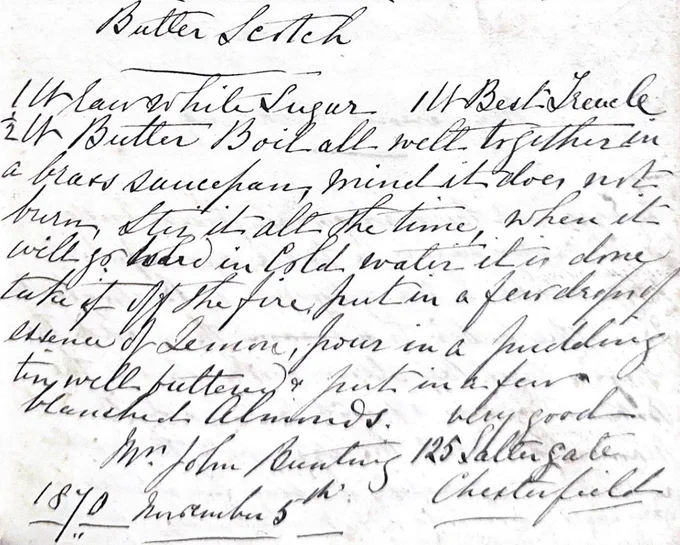 Butter Scotch
1 lb raw white Sugar 1 lb Best Treacle
1/2 lb Butter Boil all well together in
a brass saucepan, mind it does not
burn, stir it all the time, when it
will go hard in Cold water it is done
take it off the fire, put in a few drops of
essence of Lemon, pour in a pudding
tin well buttered & put in a few
blanched Almonds. very good
Mrs John Bunting 125 Saltergate
1870 November 5th Chesterfield